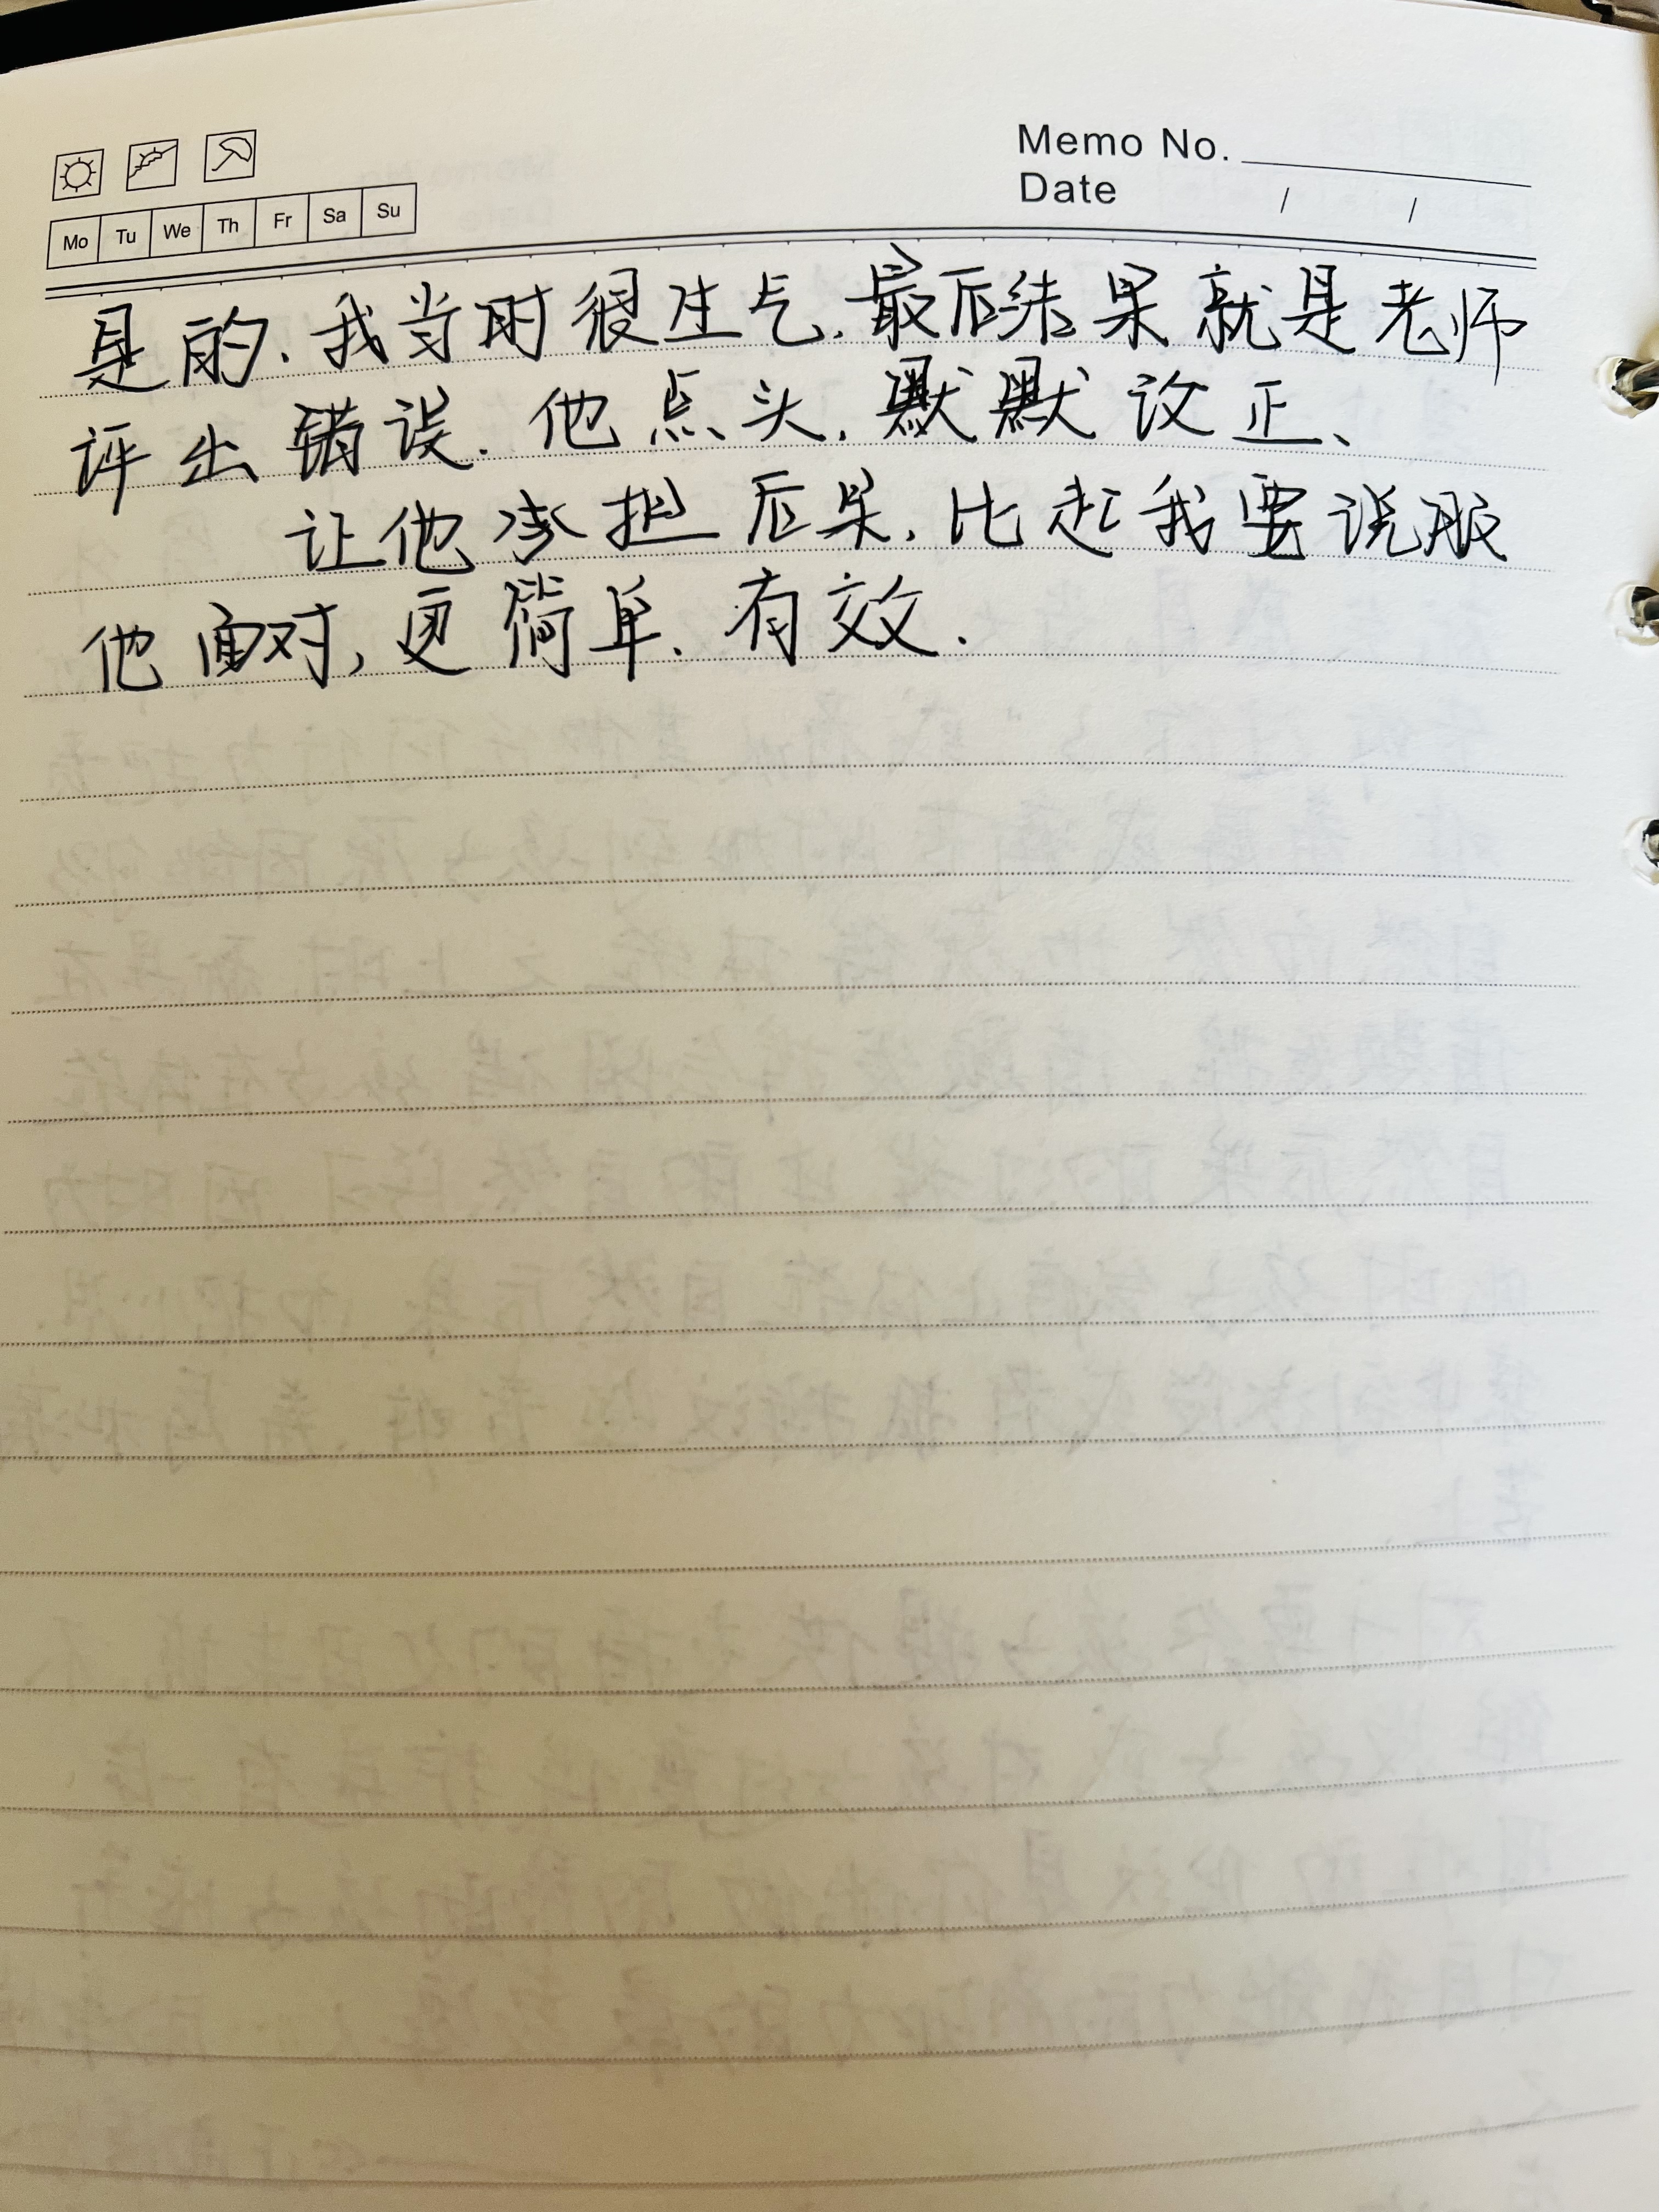 Memo No.
Date / /
Mo Tu We Th Fr Sa Su
是的.我当时很生气.最后结果就是老师
评出错误.他点头,默默改正、
让他承担后果,比起我要说服
他面对,更简单.有效.